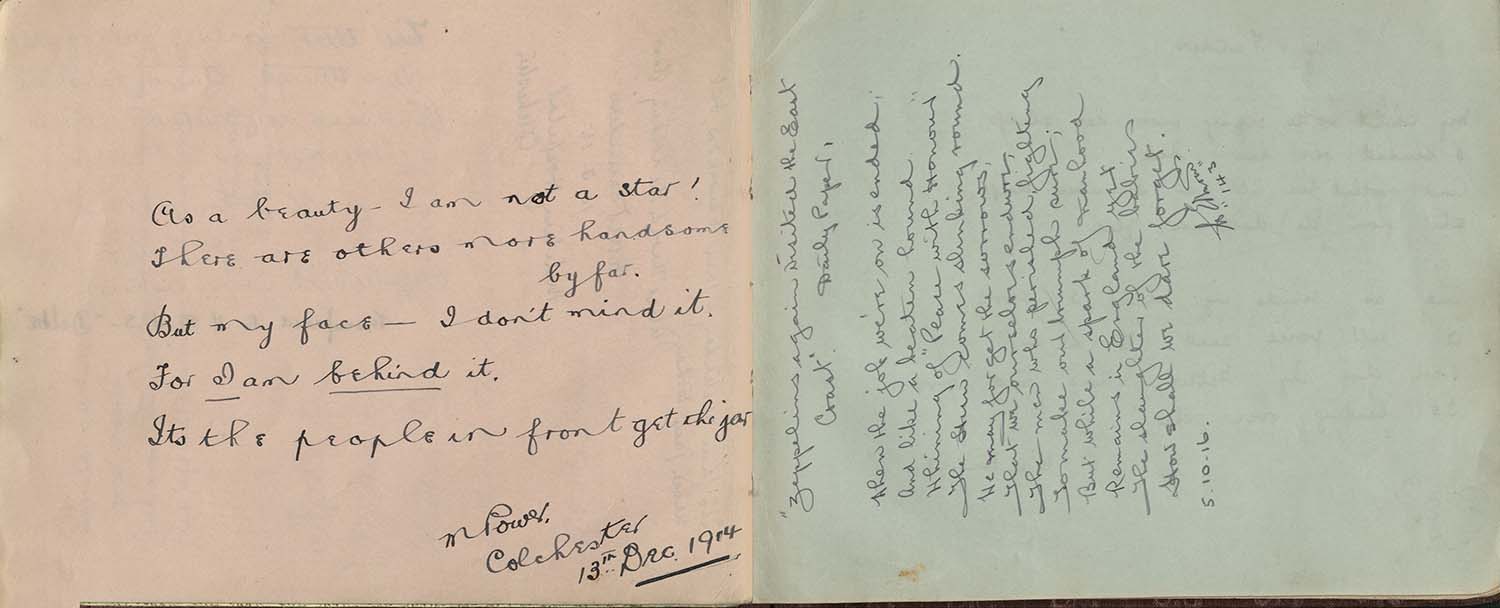 As a beauty - I am not a star!
There are others more handsome
by far.
But my face — I don't mind it.
For I am behind it.
Its the people in front get the jar
M Power.
Colchester
13th Dec. 1914
"Zeppelins again visited the East
Coast". Daily Paper.
When the job we're on is ended,
And like a beaten hound
Whining of "Peace with Honour"
The Hun comes slinking round.
He may forget the sorrows,
That we ourselves endure,
The men who perished fighting
To make our triumph sure;
But while a spark of manhood
Remains in England yet
The slaughter of the babies
How shall we dare forget.
5.10.16.